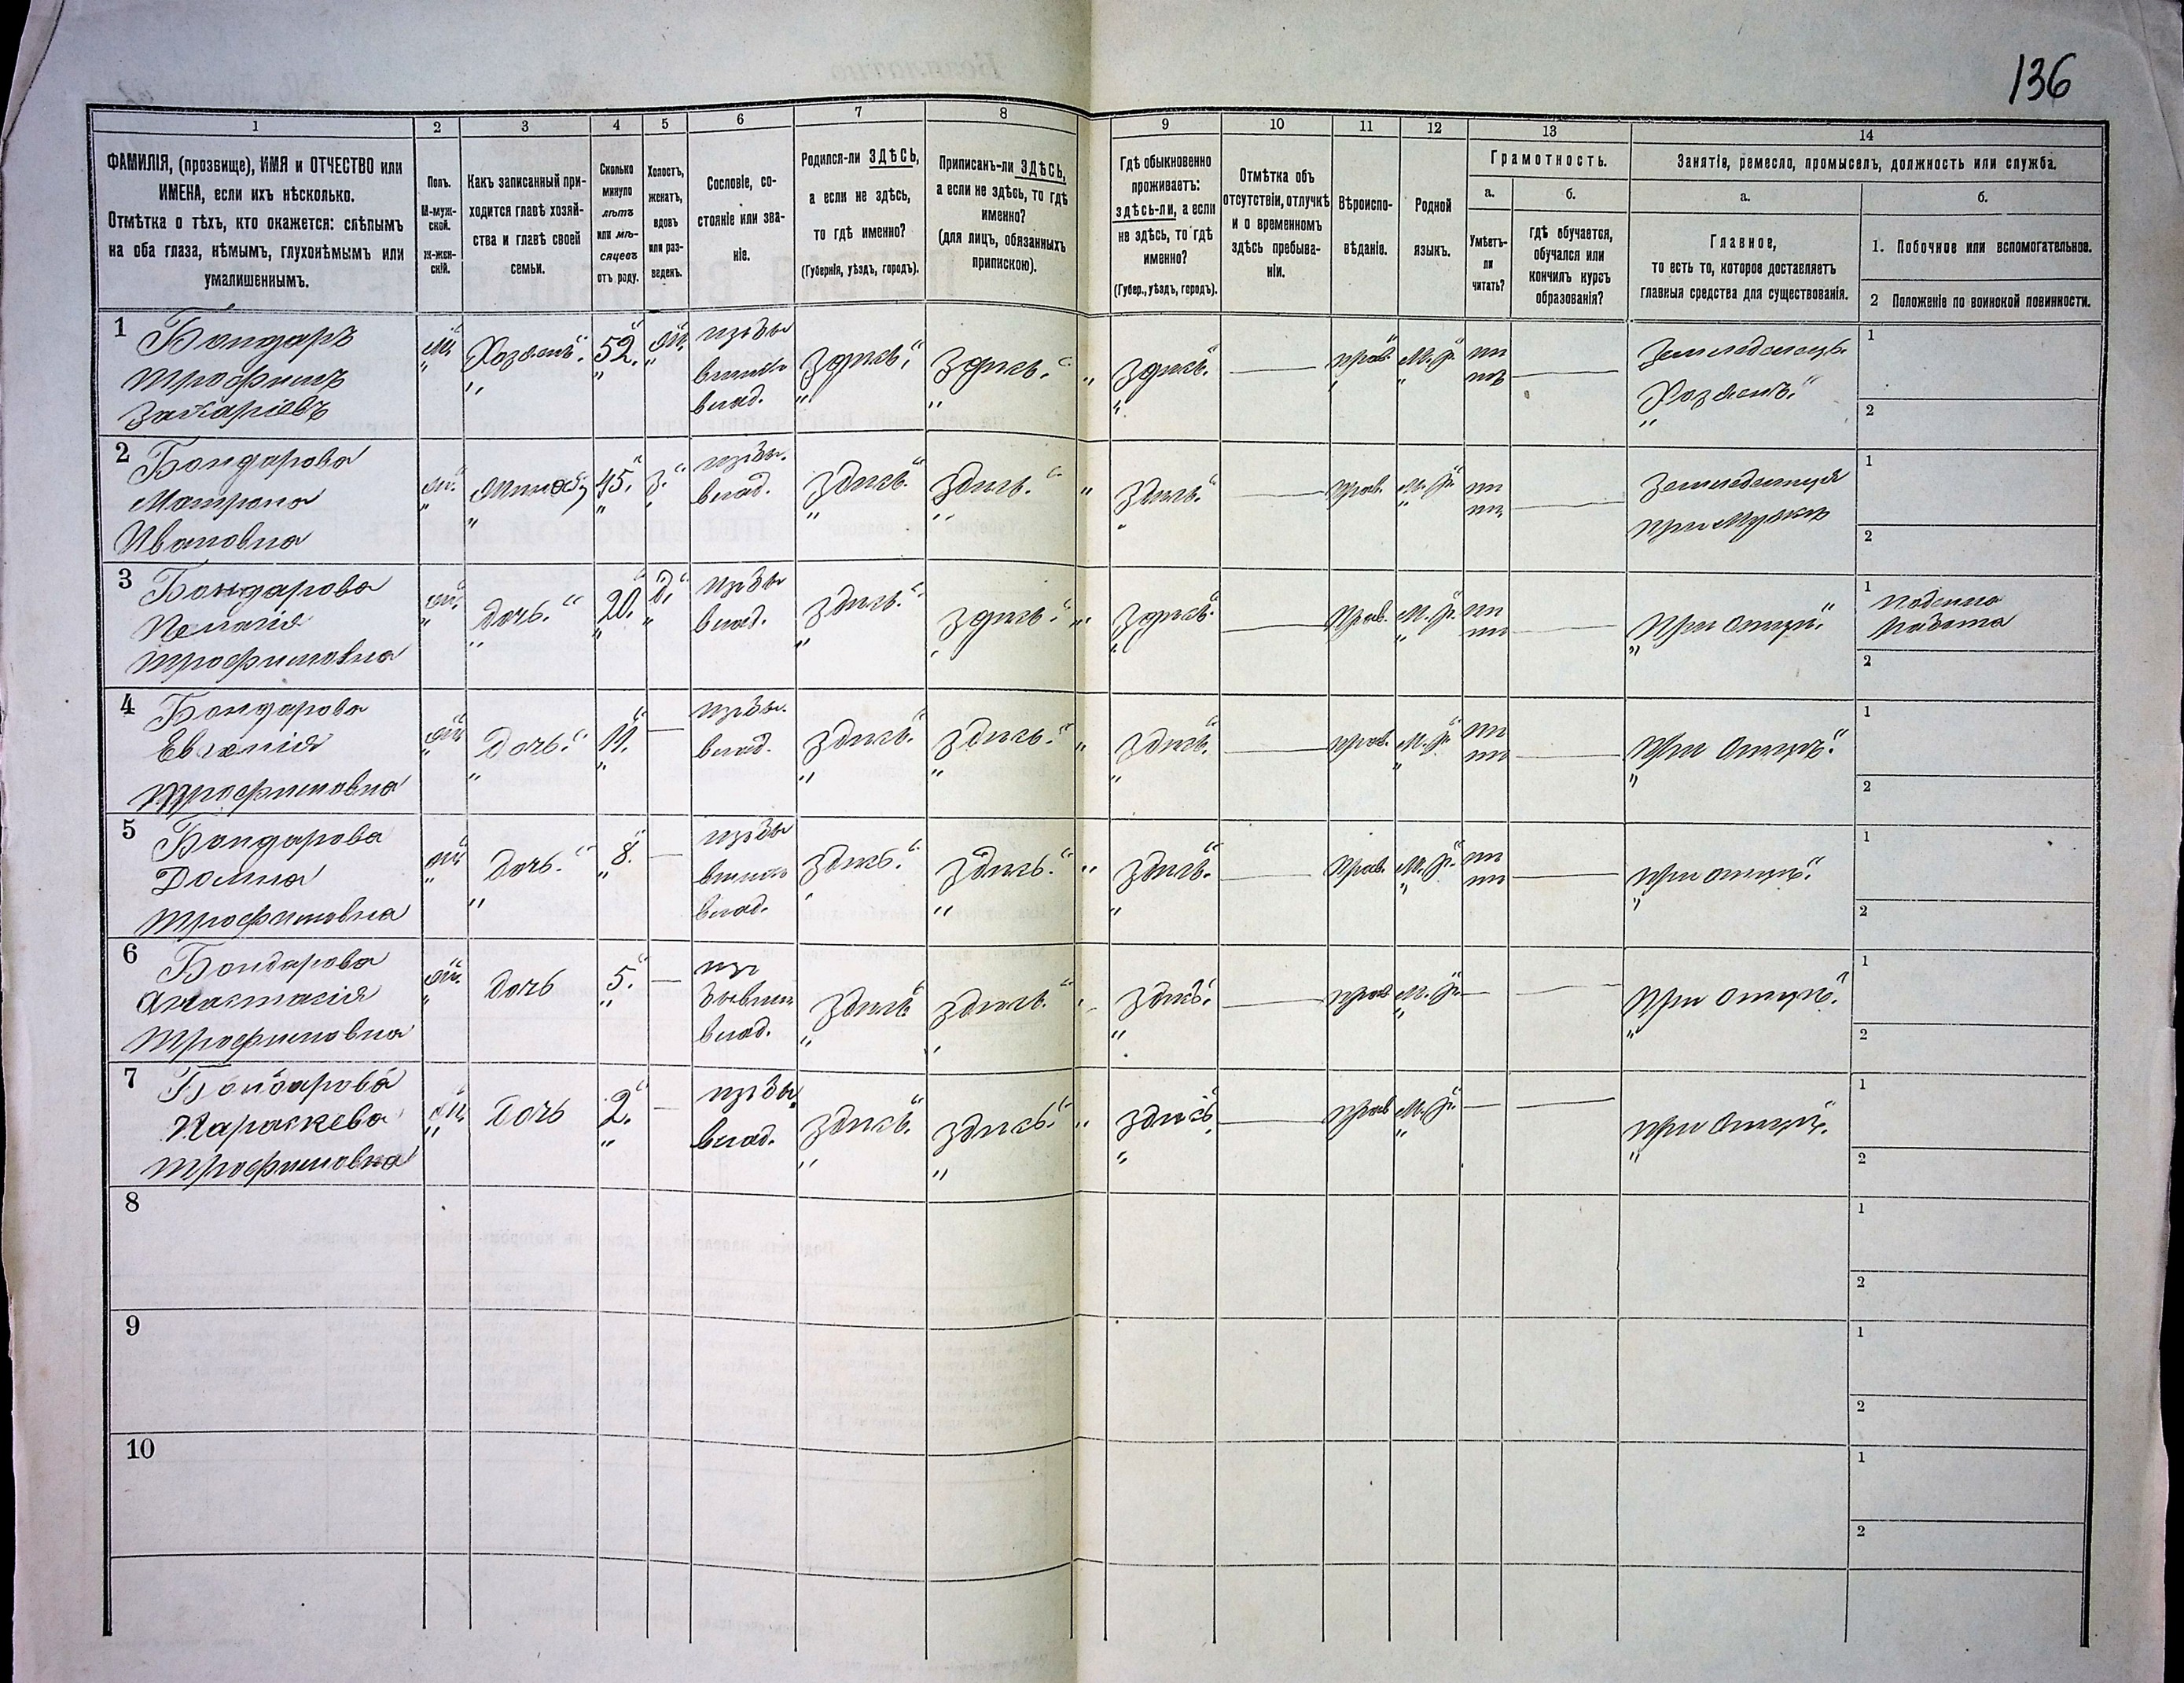 136
1 2 3 4 5 6 7 8 9 10 11 12 13 14
ФАМИЛІЯ, (прозвище), ИМЯ и ОТЧЕСТВО или ИМЕНА, если ихъ нѣсколько.
Отмѣтка о тѣхъ, кто окажется: слѣпымъ на оба глаза, нѣмымъ, глухонѣмымъ или умалишеннымъ.
Полъ. М-мужской. ж-женскій.
Какъ записанный приходится главѣ хозяйства и главѣ своей семьи.
Сколько минуло лѣтъ или мѣсяцевъ отъ роду.
Холостъ, женатъ, вдовъ или разведенъ.
Сословіе, состояніе или званіе.
Родился-ли ЗДѢСЬ, а если не здѣсь, то гдѣ именно? (Губернія, уѣздъ, городъ).
Приписанъ-ли ЗДѢСЬ, а если не здѣсь, то гдѣ именно? (для лицъ, обязанныхъ припискою).
Гдѣ обыкновенно проживаетъ: здѣсь-ли, а если не здѣсь, то гдѣ именно? (Губер., уѣздъ, городъ).
Отмѣтка объ отсутствіи, отлучкѣ и о временномъ здѣсь пребываніи.
Вѣроисповѣданіе.
Родной языкъ.
Грамотность.
а. Умѣетъ-ли читать?
б. гдѣ обучается, обучался или кончилъ курсъ образованія?
Занятіе, ремесло, промыселъ, должность или служба.
а. Главное, то есть то, которое доставляетъ главныя средства для существованія.
б. 1. Побочное или вспомогательное.
2 Положеніе по воинской повинности.
1 Бондарь Трофимъ Захаріевъ м. Хозяинъ. 52. ж. изъ бы владѣ. Здѣсь. Здѣсь. Здѣсь. — прав. М. р. нѣтъ — Земледѣлецъ. Хозяинъ. 1 2
2 Бондарова Матрона Ивановна ж. жена 45. З. изъ бы. влад. Здѣсь. Здѣсь. Здѣсь. — прав. М. р. — Земледѣлица при Мужѣ 1 2
3 Бондарова Пелагія Трофимовна ж. Дочь. 20. Д. изъ бы влад. Здѣсь. Здѣсь. Здѣсь. — прав. М. р. — При Отцѣ. 1 2
4 Бондарова Евгенія Трофимовна ж. Дочь. 11. — изъ бы. влад. Здѣсь. Здѣсь. Здѣсь. — прав. М. р. — При Отцѣ. 1 2
5 Бондарова Домна Трофимовна ж. Дочь. 8. — изъ бы влад. Здѣсь. Здѣсь. Здѣсь. — прав. М. р. — При Отцѣ. 1 2
6 Бондарова Анастасія Трофимовна ж. Дочь 5. — изъ бывши влад. Здѣсь Здѣсь. Здѣсь. — прав М. р. — — При Отцѣ. 1 2
7 Бондарова Параскева Трофимовна ж. Дочь 2. — изъ бы. влад. Здѣсь. Здѣсь. Здѣсь. — прав М. р. — — При Отцѣ. 1 2
8 1 2
9 1 2
10 1 2